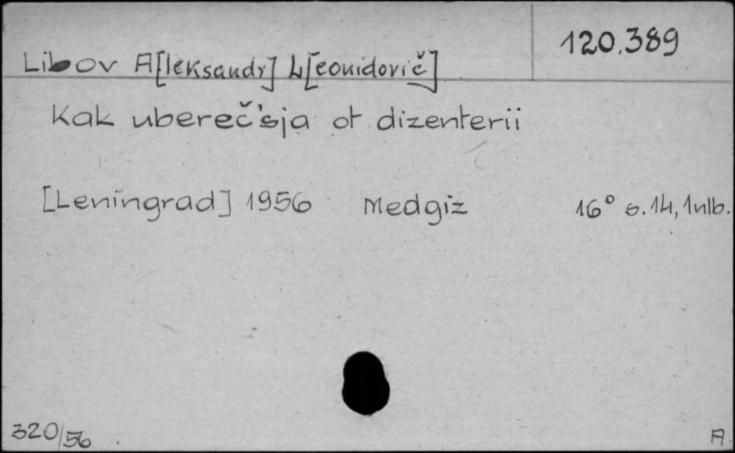 120.389
Libov A[leksandr] L[eonidovič]
Kak ubereč'sja ot dizenterii
[Leningrad] 1956 Medgiz 16° s. 14, 1nlb.
320/56 A